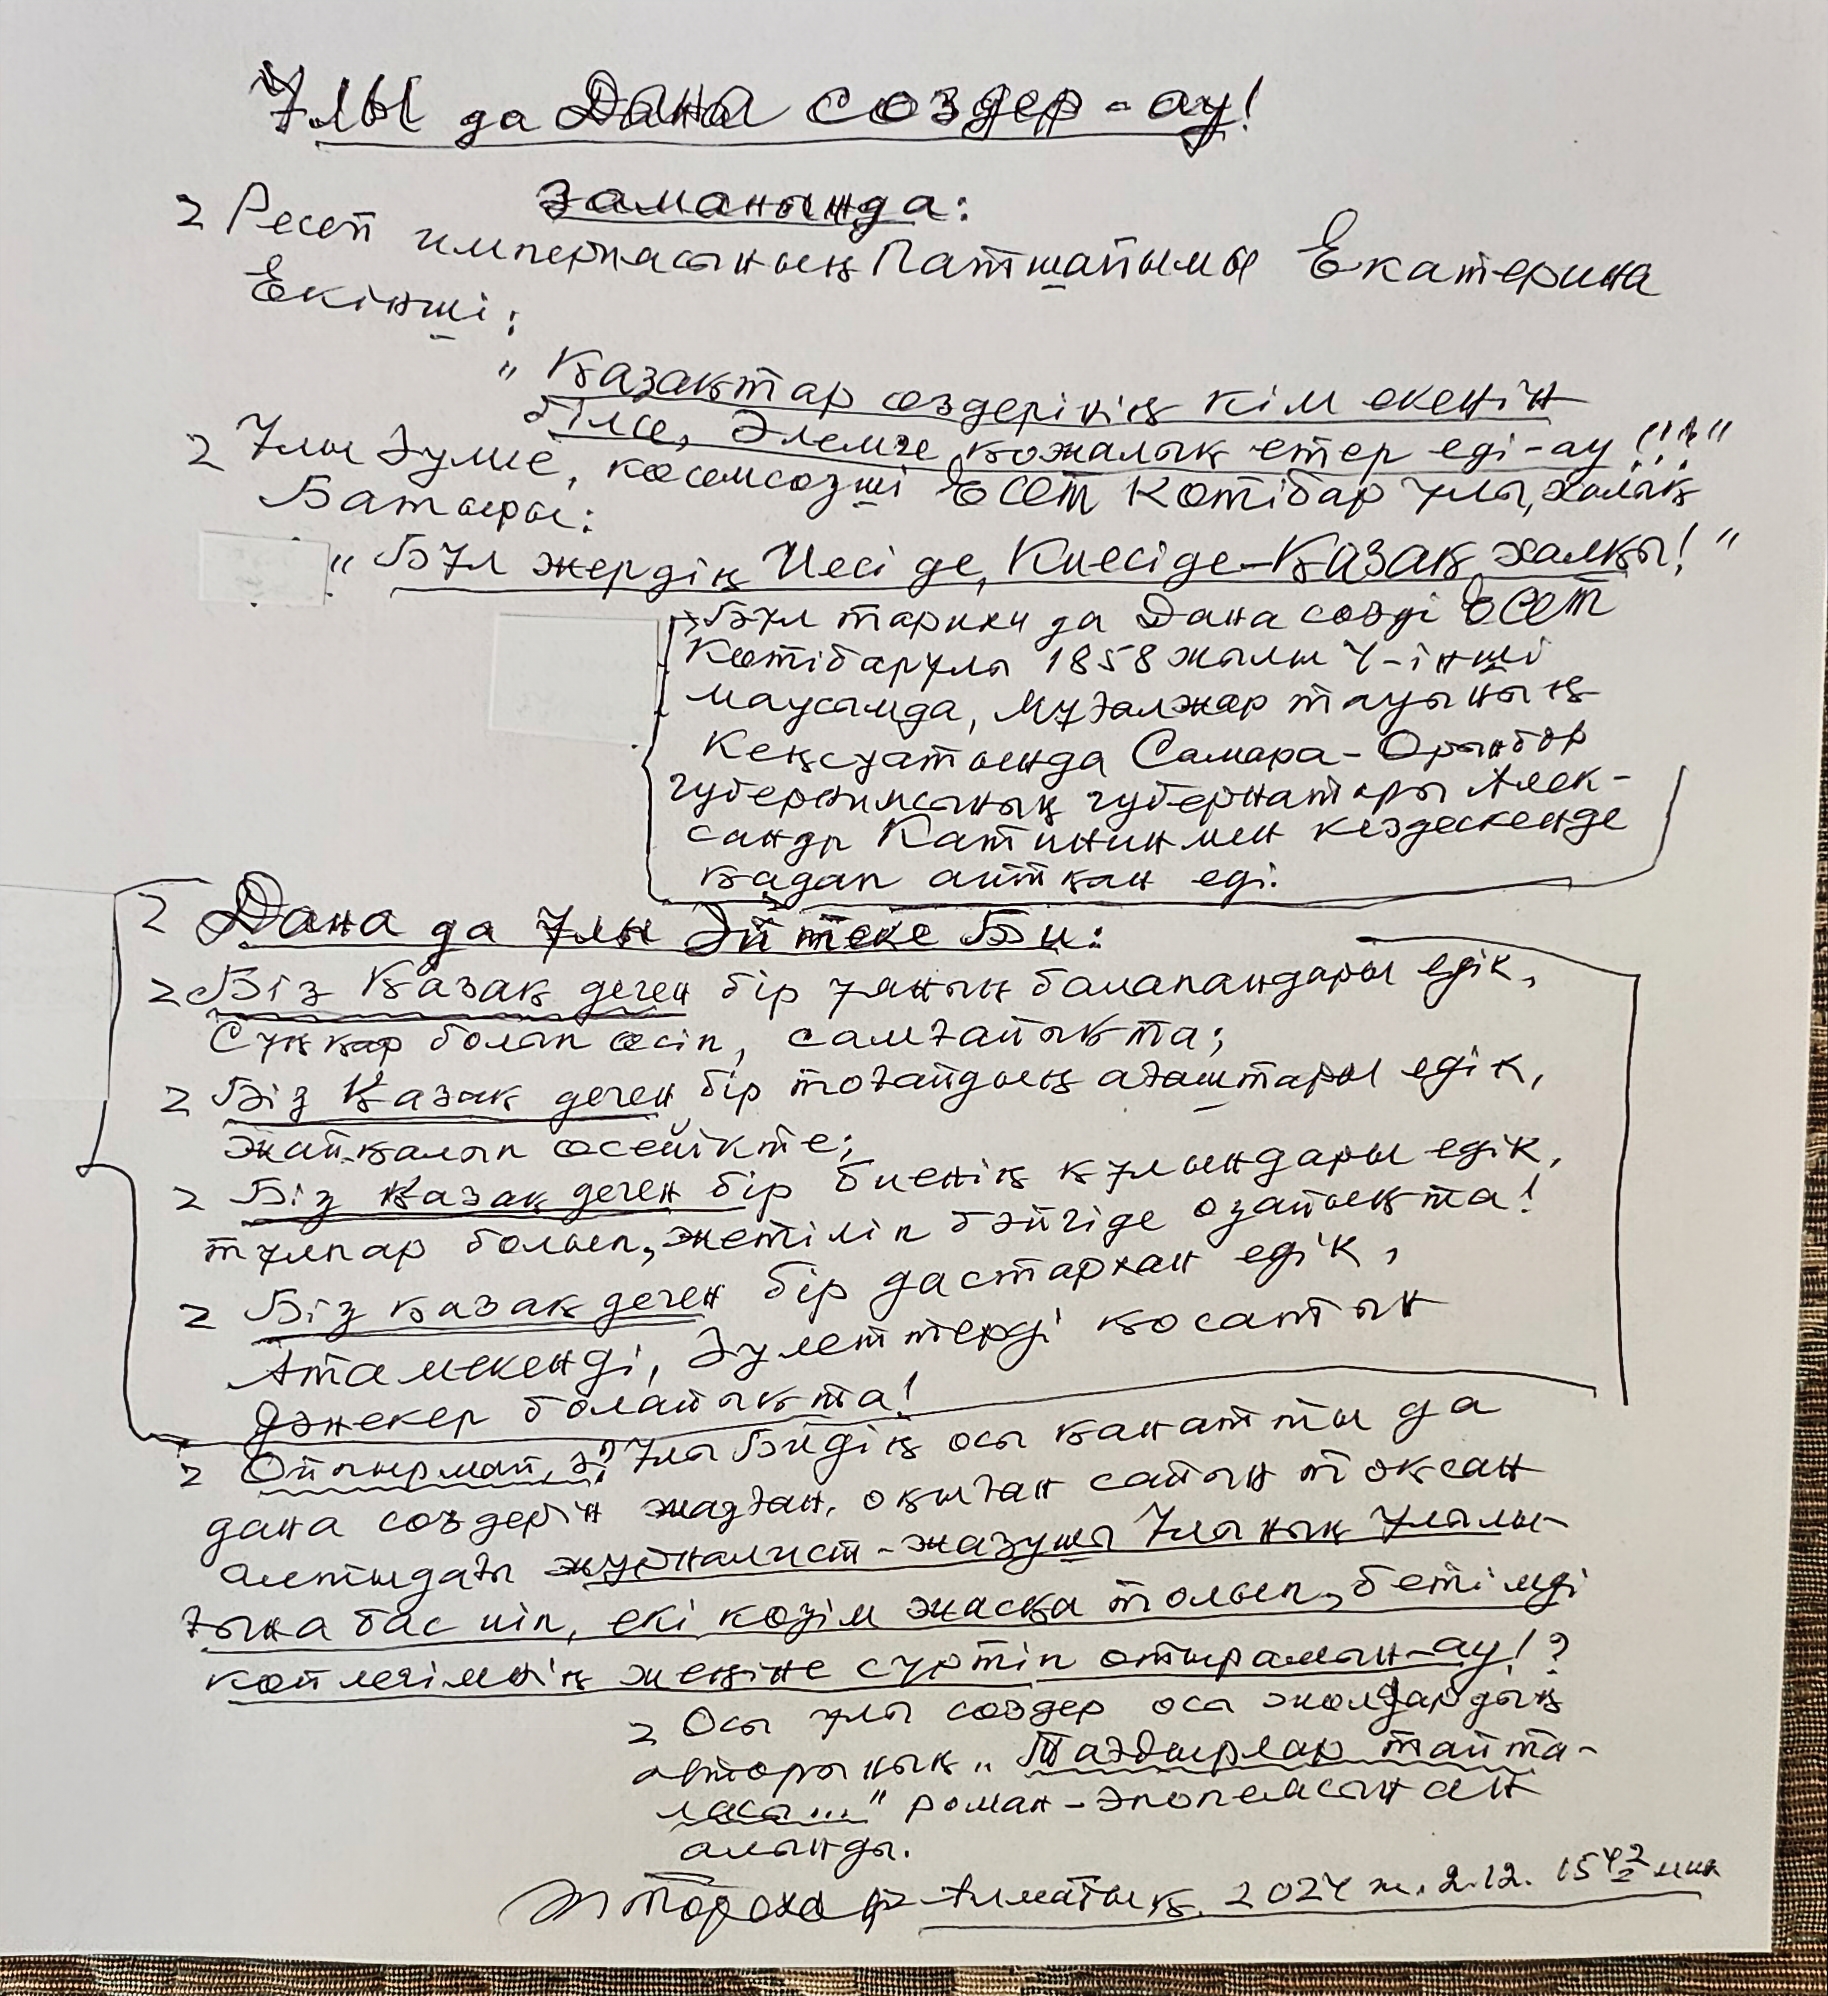 Ұлы да Дана сөздер-ау!
заманында:
Ресей империясының Патшайымы Екатерина
Екінші:
"Қазақтар өздерінің кім екенін
білсе, Әлемге қожалық етер еді-ау!!!"
Ұлы Әулие, көсемсөзші Есет Көтібар ұлы, халық
Батыры:
"Бұл жердің Иесі де, Киесіде-Қазақ халқы!"
Бұл тарихи да Дана сөзді Есет
Көтібарұлы 1858 жылы 4-інші
маусымда, Мұғалжар тауының
Кеңсуатында Самара-Орынбор
губерниясының губернаторы Алек-
сандр Катининмен кездескенде
қадап айтқан еді.
Дана да Ұлы Әйтеке Би:
Біз Қазақ деген бір ұяның балапандары едік,
Сұңқар болып өсіп, самғайықта;
Біз Қазақ деген бір тоғайдың ағаштары едік,
жайқалып өсейікте;
Біз Қазақ деген бір биенің құлындары едік,
тұлпар болып, жетіліп бәйгіде озайықта!
Біз қазақ деген бір дастархан едік,
Атамекенді, Әулеттерді қосатын
дәнекер болайықта!
Ойпырмай, ә? Ұлы Бидің осы қанатты да
дана сөздерін жазған, оқыған сайын тоқсан
алтыдағы журналист-жазушы Ұлының Ұлылы-
ғына бас иіп, екі көзім жасқа толып, бетімді
көйлегімнің жеңіне сүртіп отырамын-ау!?
Осы ұлы сөздер осы жолдардың
авторының "Тағдырлар тайта-
ласы..." роман-эпопеясынан
алынды.
Алматы қ. 2024 ж. 2.12. 15 42 мин